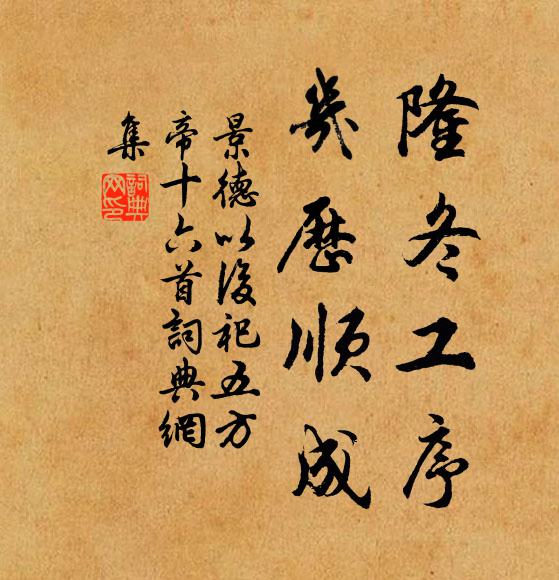 隆冬工序
幾歷順成
景德以後祀五方
帝十六首詞典網
集
詞典網印